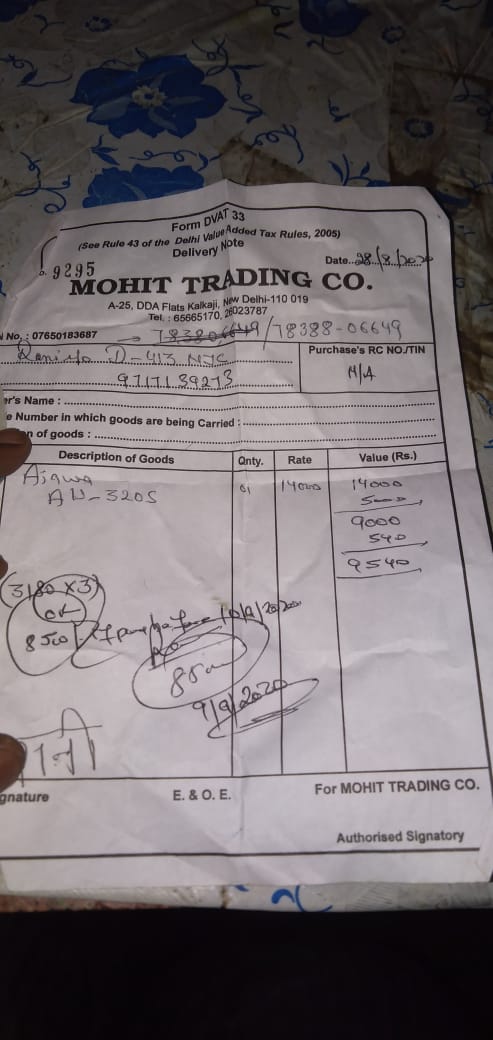 Form DVAT 33
(See Rule 43 of the Delhi Value Added Tax Rules, 2005)
Delivery Note
o. 9295
Date..28/8/2020
MOHIT TRADING CO.
A-25, DDA Flats Kalkaji, New Delhi-110 019
Tel. : 65665170, 26023787
No. : 07650183687
7838806649/78388-06649
D-413 NTC
9717139273
Purchase's RC NO./TIN
N/A
er's Name :
e Number in which goods are being Carried :
on of goods :
Description of Goods Qnty. Rate Value (Rs.)
Aiqwa 01 14000 14000
AW-320S 5000
9000
540
9540
(3180 X 3)
OK
8500
9/9/2020
gnature E. & O. E. For MOHIT TRADING CO.
Authorised Signatory